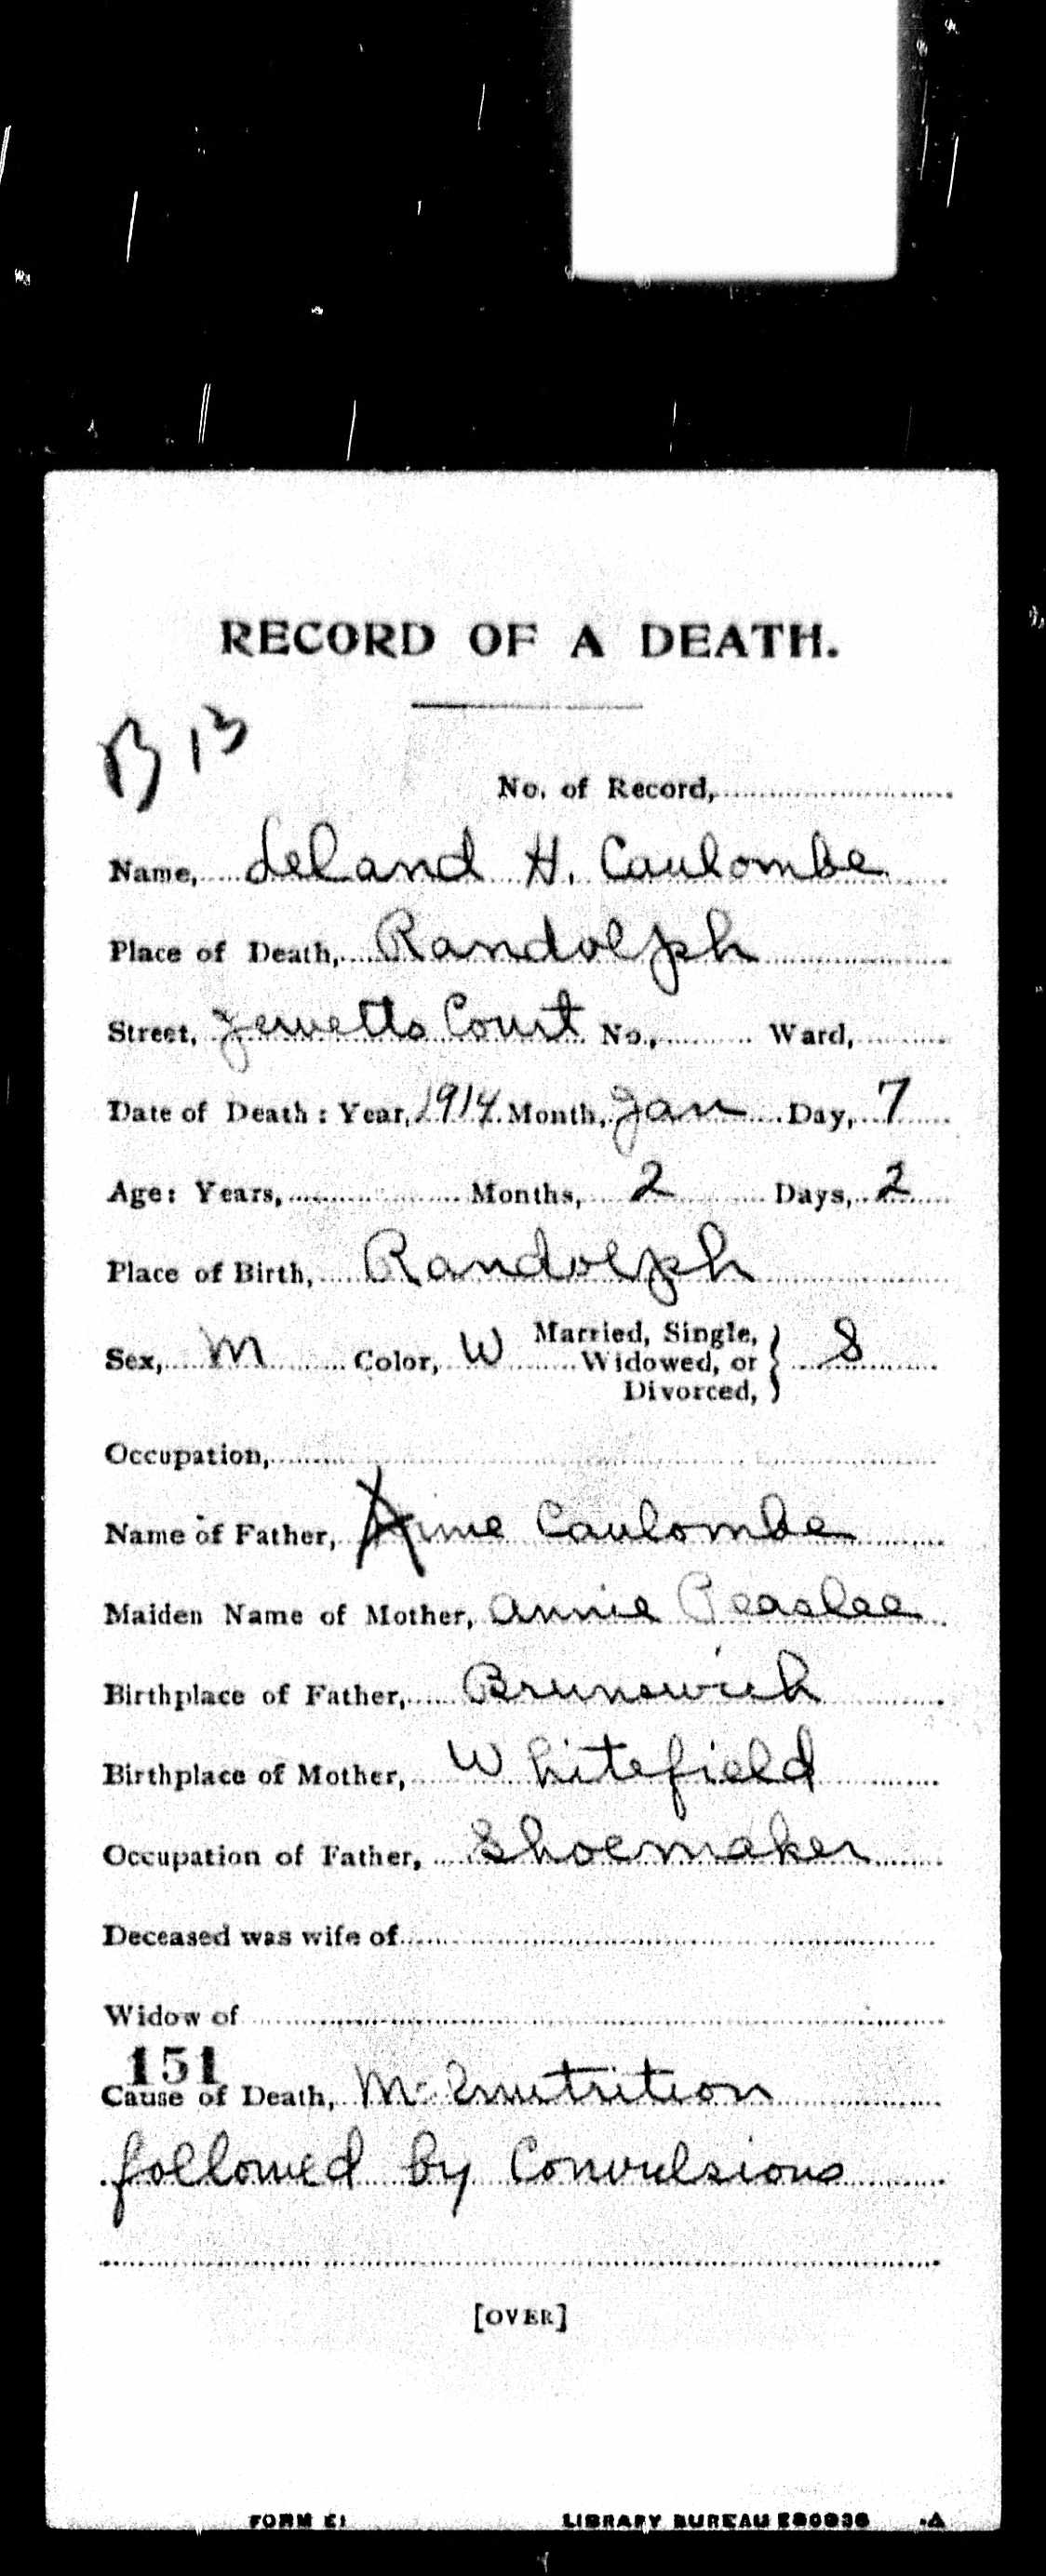 RECORD OF A DEATH.
B 13
No. of Record,
Name, Leland H. Caulombe
Place of Death, Randolph
Street, Jewetts Court No., Ward,
Date of Death: Year, 1914 Month, Jan Day, 7
Age: Years, Months, 2 Days, 2
Place of Birth, Randolph
Sex, M Color, W Married, Single,
Widowed, or } S
Divorced,
Occupation,
Name of Father, Caulombe
Maiden Name of Mother, Annie Peaslee
Birthplace of Father, Brunswick
Birthplace of Mother, Whitefield
Occupation of Father, Shoemaker
Deceased was wife of
Widow of
151
Cause of Death,
followed by Convulsions
[OVER]
FORM E1 LIBRARY BUREAU